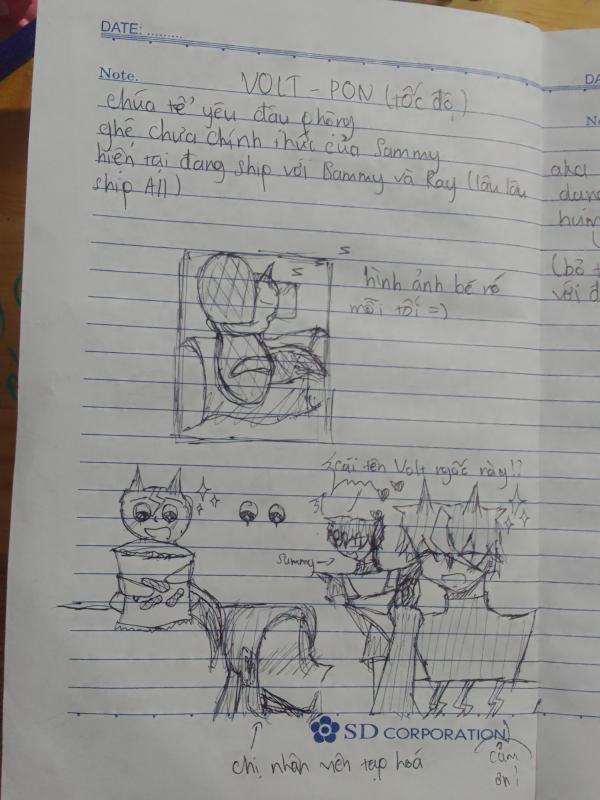 DATE: .........
Note.
VOLT - PON (tốc độ)
chúa tể yêu đấu phông
ghệ chưa chính thức của Sammy
hiện tại đang ship với Sammy và Ray (lâu lâu
ship All)
S
S
S
hình ảnh bé rớ
mỗi tối =)
cái tên Volt ngốc này!?
Sammy →
SD CORPORATION
chị nhân viên tạp hoá
cảm
ơn!
DA
No
aka
dang
hún
(
(bỏ t
với đ